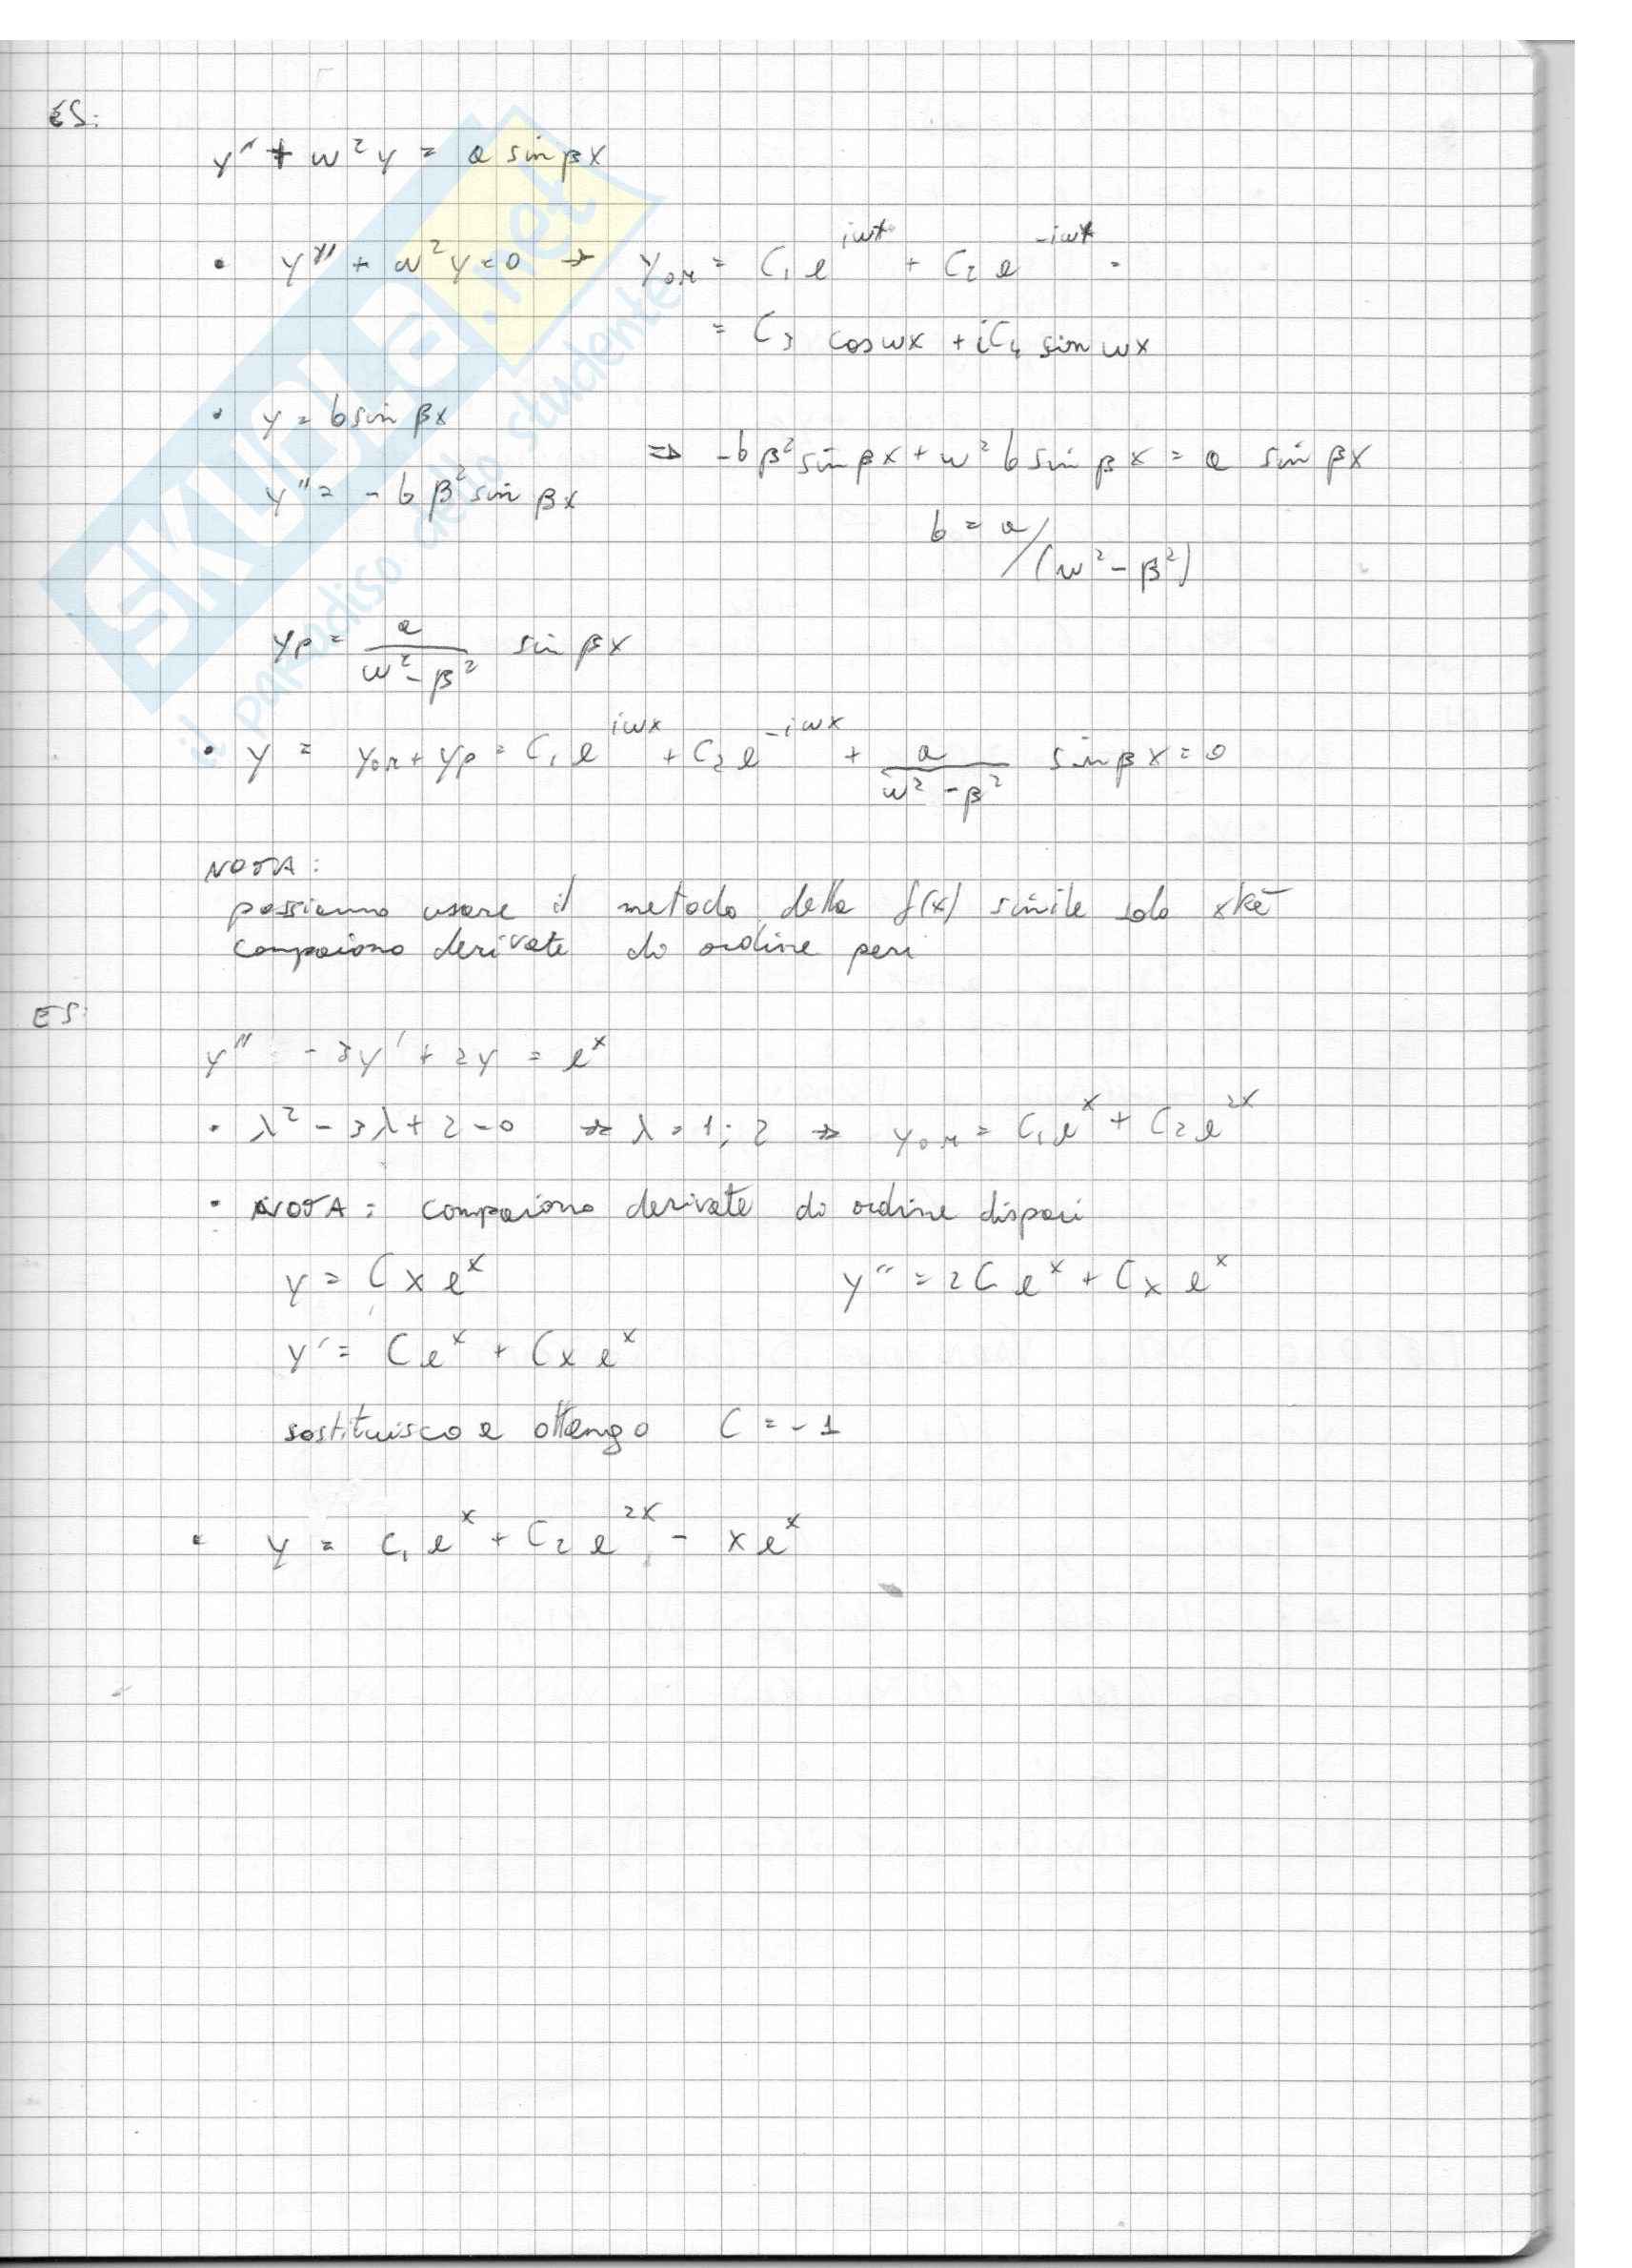 ES:
y'' + ω²y = a sin βx
• y'' + ω²y = 0 → y_om = C₁ e^{iωx} + C₂ e^{-iωx} =
= C₃ cos ωx + iC₄ sin ωx
• y = b sin βx
⇒ -bβ² sin βx + ω² b sin βx = a sin βx
y'' = -bβ² sin βx
b = a/(ω² - β²)
y_p = a/(ω² - β²) sin βx
• y = y_om + y_p = C₁ e^{iωx} + C₂ e^{-iωx} + a/(ω² - β²) sin βx = 0
NOTA:
possiamo usare il metodo della f(x) simile solo xkè
compaiono derivate di ordine pari
ES:
y'' - 3y' + 2y = e^x
• λ² - 3λ + 2 = 0 ⇒ λ = 1; 2 ⇒ y_om = C₁e^x + C₂e^{2x}
• NOTA: compaiono derivate di ordine dispari
y = C x e^x y'' = 2C e^x + C x e^x
y' = C e^x + C x e^x
sostituisco e ottengo C = -1
• y = C₁ e^x + C₂ e^{2x} - x e^x
SKUOLA.net
il paradiso dello studente